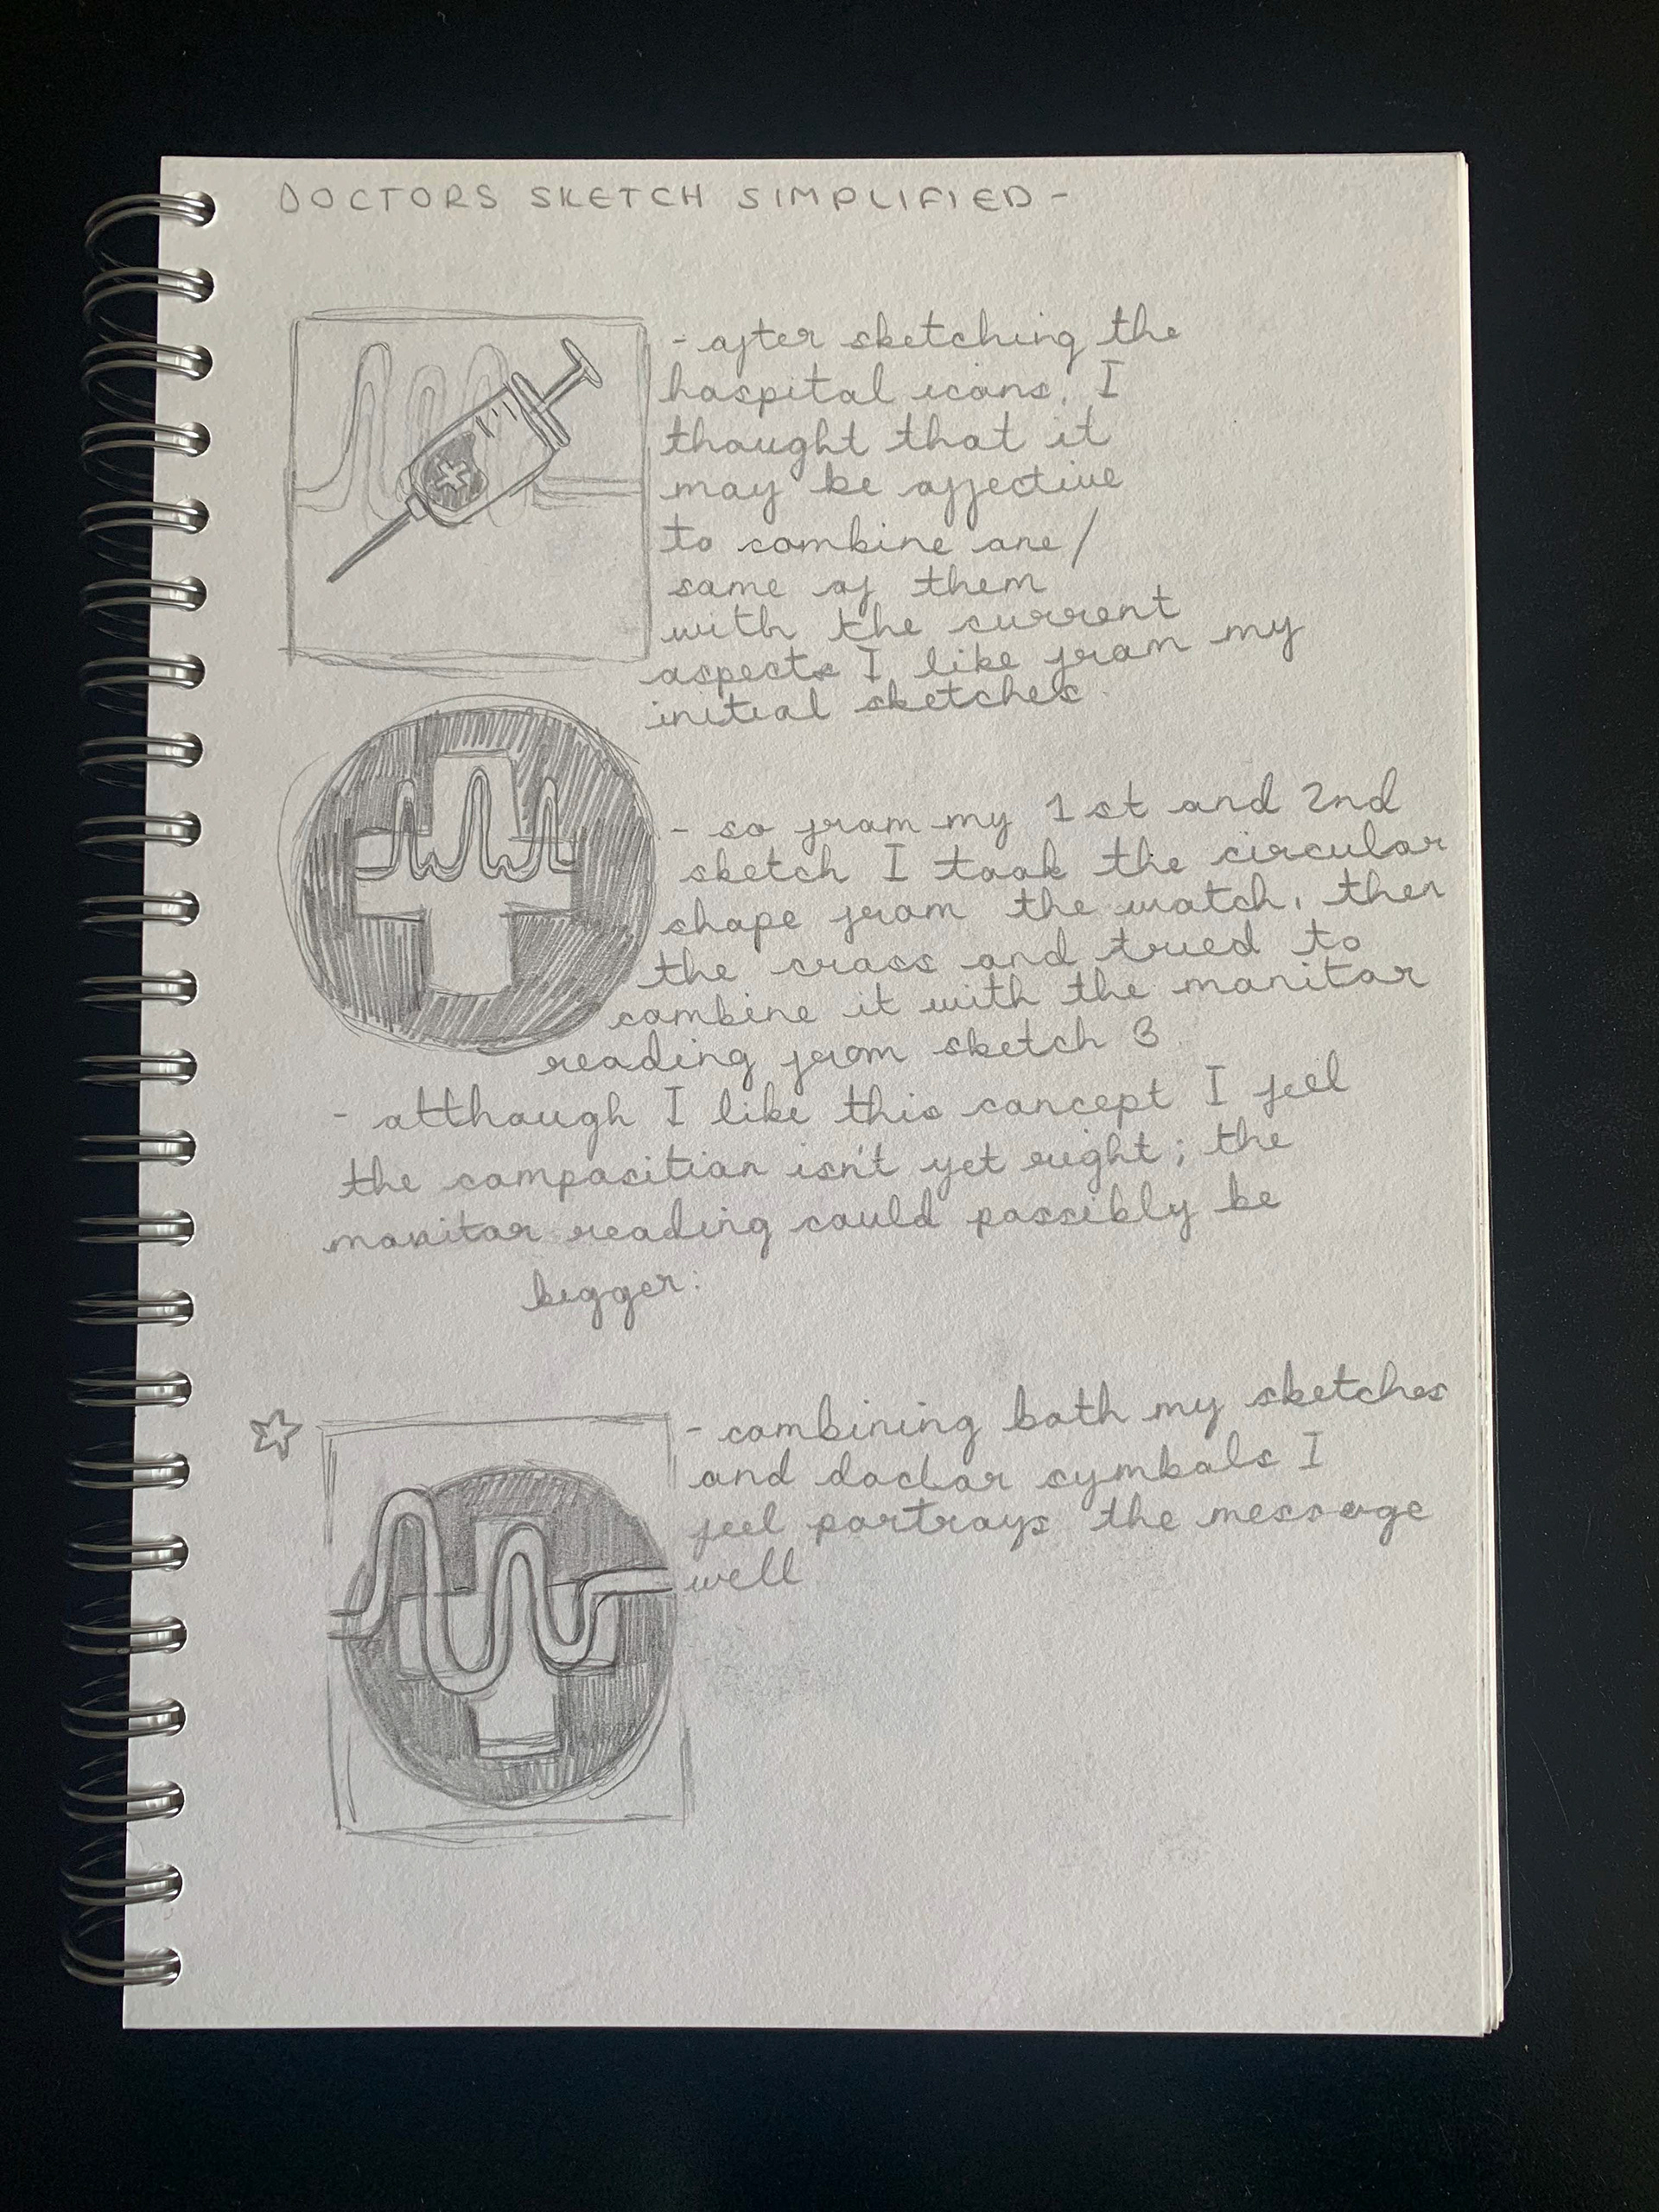 DOCTORS SKETCH SIMPLIFIED -
- after sketching the
hospital icons, I
thought that it
may be affective
to combine one/
some of them
with the current
aspects I like from my
initial sketches.
- so from my 1st and 2nd
sketch I took the circular
shape from the watch, then
the cross and tried to
combine it with the monitor
reading from sketch 3.
- although I like this concept I feel
the composition isn't yet right; the
monitor reading could possibly be
bigger.
- combining both my sketches
and doctor symbols I
feel portrays the message
well